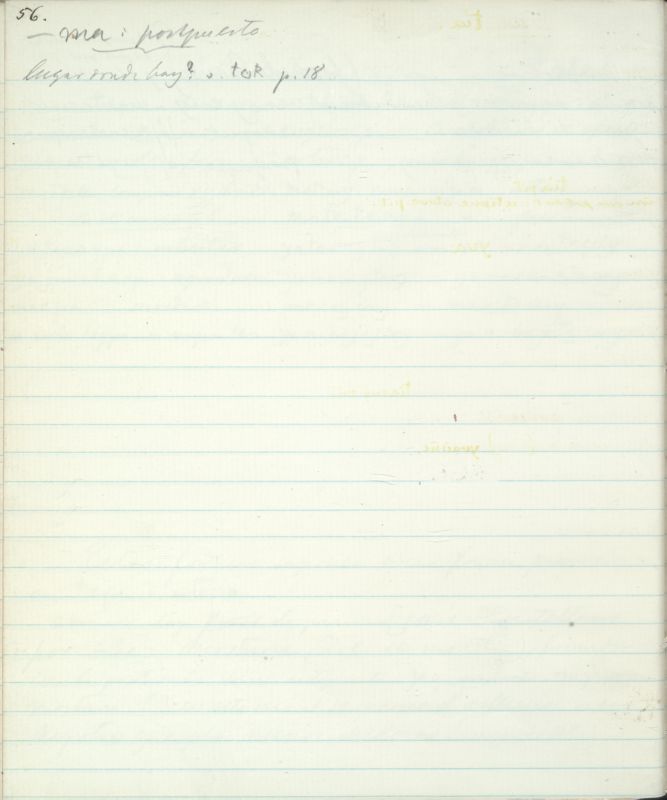 56.
— ma: postpuesto
lugar donde hay? v. tok p. 18